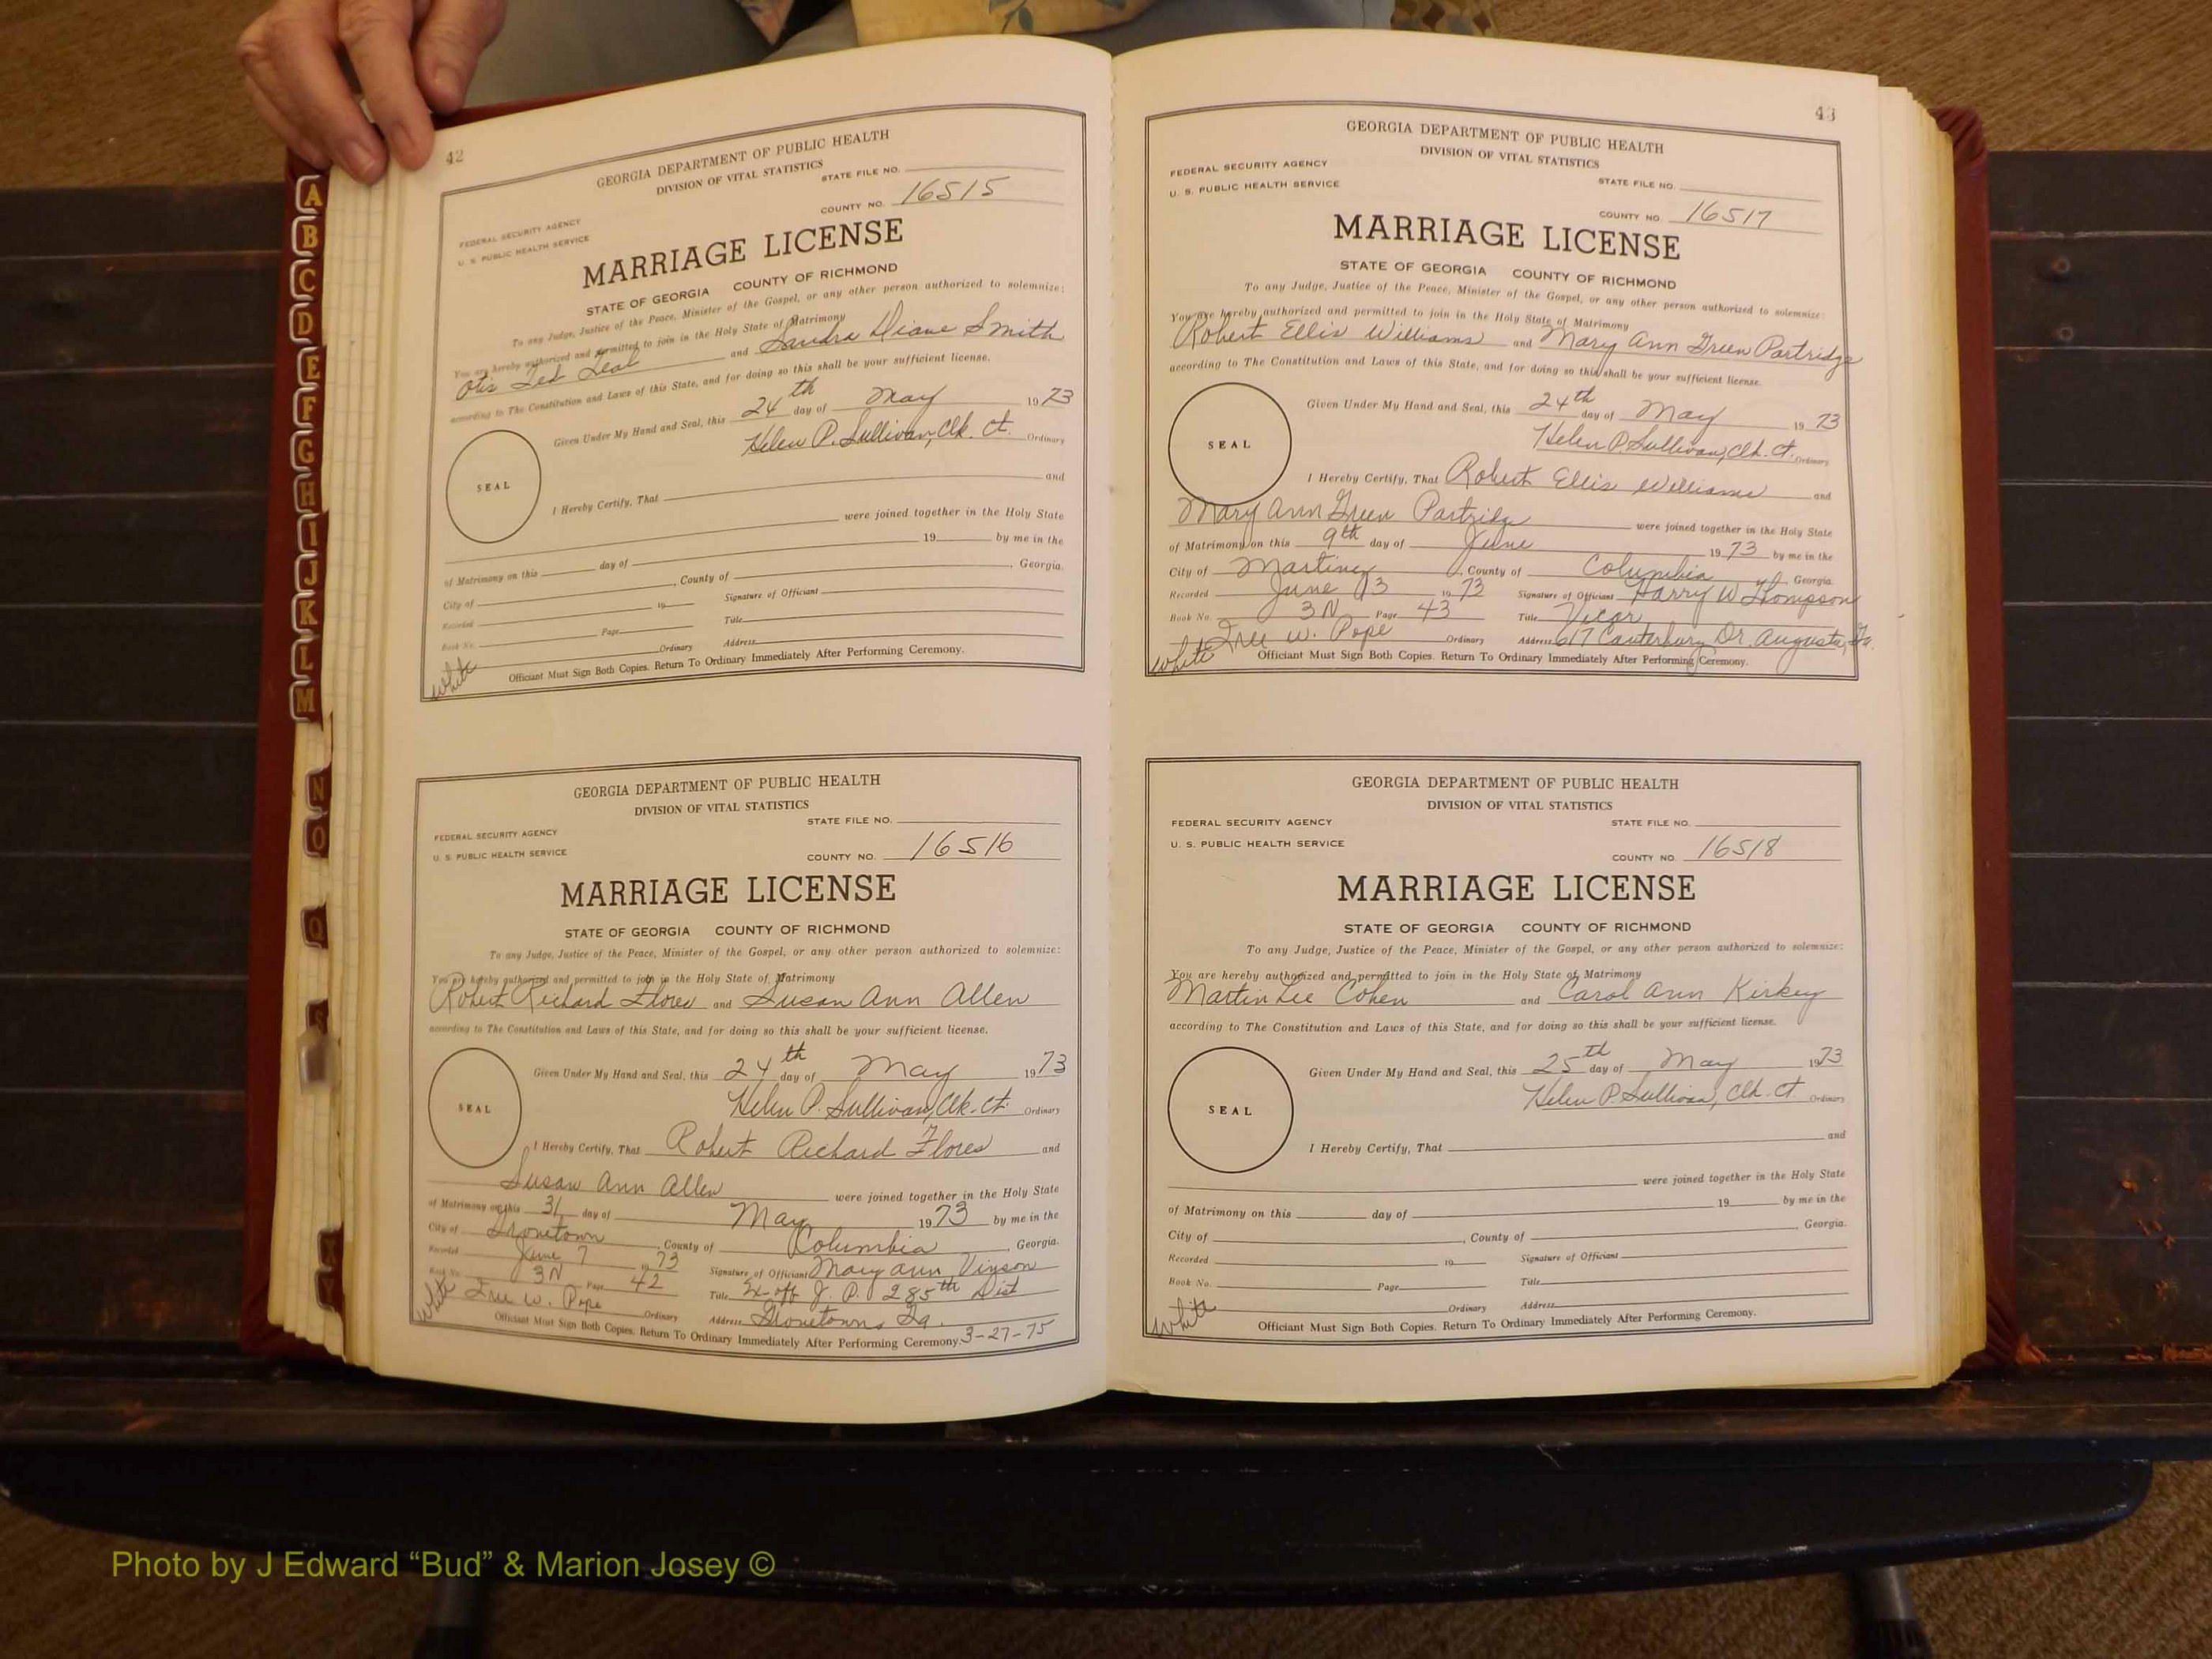 A
B
C
D
E
F
G
H
I
J
K
L
M
N
O
Q
S
X
Y
42
GEORGIA DEPARTMENT OF PUBLIC HEALTH
DIVISION OF VITAL STATISTICS
STATE FILE NO.
COUNTY NO. 16515
FEDERAL SECURITY AGENCY
U. S. PUBLIC HEALTH SERVICE
MARRIAGE LICENSE
STATE OF GEORGIA COUNTY OF RICHMOND
To any Judge, Justice of the Peace, Minister of the Gospel, or any other person authorized to solemnize:
You are hereby authorized and permitted to join in the Holy State of Matrimony
Otis Ted Leal and Sandra Diane Smith
according to The Constitution and Laws of this State, and for doing so this shall be your sufficient license.
Given Under My Hand and Seal, this 24th day of May 1973
Helen P. Sullivan, Clk. Ct. Ordinary
SEAL
I Hereby Certify, That and
were joined together in the Holy State
of Matrimony on this day of 19 by me in the
City of , County of , Georgia.
Recorded 19 Signature of Officiant
Book No. Page Title
Ordinary Address
white
Officiant Must Sign Both Copies. Return To Ordinary Immediately After Performing Ceremony.
GEORGIA DEPARTMENT OF PUBLIC HEALTH
DIVISION OF VITAL STATISTICS
FEDERAL SECURITY AGENCY STATE FILE NO.
U. S. PUBLIC HEALTH SERVICE COUNTY NO. 16516
MARRIAGE LICENSE
STATE OF GEORGIA COUNTY OF RICHMOND
To any Judge, Justice of the Peace, Minister of the Gospel, or any other person authorized to solemnize:
You are hereby authorized and permitted to join in the Holy State of Matrimony
Robert Richard Flores and Susan Ann Allen
according to The Constitution and Laws of this State, and for doing so this shall be your sufficient license.
Given Under My Hand and Seal, this 24th day of May 1973
Helen P. Sullivan, Clk. Ct. Ordinary
SEAL
I Hereby Certify, That Robert Richard Flores and
Susan Ann Allen were joined together in the Holy State
of Matrimony on this 31 day of May 1973 by me in the
City of Grovetown, County of Columbia, Georgia.
Recorded June 7 1973 Signature of Officiant Mary Ann Vinson
Book No. 3N Page 42 Title Ex-off J. P. 285th Dist
white W. Pope Ordinary Address Grovetown, Ga.
Officiant Must Sign Both Copies. Return To Ordinary Immediately After Performing Ceremony. 3-27-75
43
GEORGIA DEPARTMENT OF PUBLIC HEALTH
DIVISION OF VITAL STATISTICS
FEDERAL SECURITY AGENCY
U. S. PUBLIC HEALTH SERVICE
STATE FILE NO.
COUNTY NO. 16517
MARRIAGE LICENSE
STATE OF GEORGIA COUNTY OF RICHMOND
To any Judge, Justice of the Peace, Minister of the Gospel, or any other person authorized to solemnize:
You are hereby authorized and permitted to join in the Holy State of Matrimony
Robert Ellis Williams and Mary Ann Green Partridge
according to The Constitution and Laws of this State, and for doing so this shall be your sufficient license.
Given Under My Hand and Seal, this 24th day of May 1973
Helen P. Sullivan, Clk. Ct. Ordinary
SEAL
I Hereby Certify, That Robert Ellis Williams and
Mary Ann Green Partridge were joined together in the Holy State
of Matrimony on this 9th day of June 1973 by me in the
City of Martinez, County of Columbia, Georgia.
Recorded June 13 1973 Signature of Officiant Harry W Thompson
Book No. 3N Page 43 Title Vicar
white W. Pope Ordinary Address 617 Canterbury Dr. Augusta, Ga.
Officiant Must Sign Both Copies. Return To Ordinary Immediately After Performing Ceremony.
GEORGIA DEPARTMENT OF PUBLIC HEALTH
DIVISION OF VITAL STATISTICS
FEDERAL SECURITY AGENCY STATE FILE NO.
U. S. PUBLIC HEALTH SERVICE COUNTY NO. 16518
MARRIAGE LICENSE
STATE OF GEORGIA COUNTY OF RICHMOND
To any Judge, Justice of the Peace, Minister of the Gospel, or any other person authorized to solemnize:
You are hereby authorized and permitted to join in the Holy State of Matrimony
Martin Lee Cohen and Carol Ann Kirkey
according to The Constitution and Laws of this State, and for doing so this shall be your sufficient license.
Given Under My Hand and Seal, this 25th day of May 1973
Helen P. Sullivan, Clk. Ct. Ordinary
SEAL
I Hereby Certify, That and
were joined together in the Holy State
of Matrimony on this day of 19 by me in the
City of , County of , Georgia.
Recorded 19 Signature of Officiant
Book No. Page Title
white Ordinary Address
Officiant Must Sign Both Copies. Return To Ordinary Immediately After Performing Ceremony.
Photo by J Edward “Bud” & Marion Josey ©